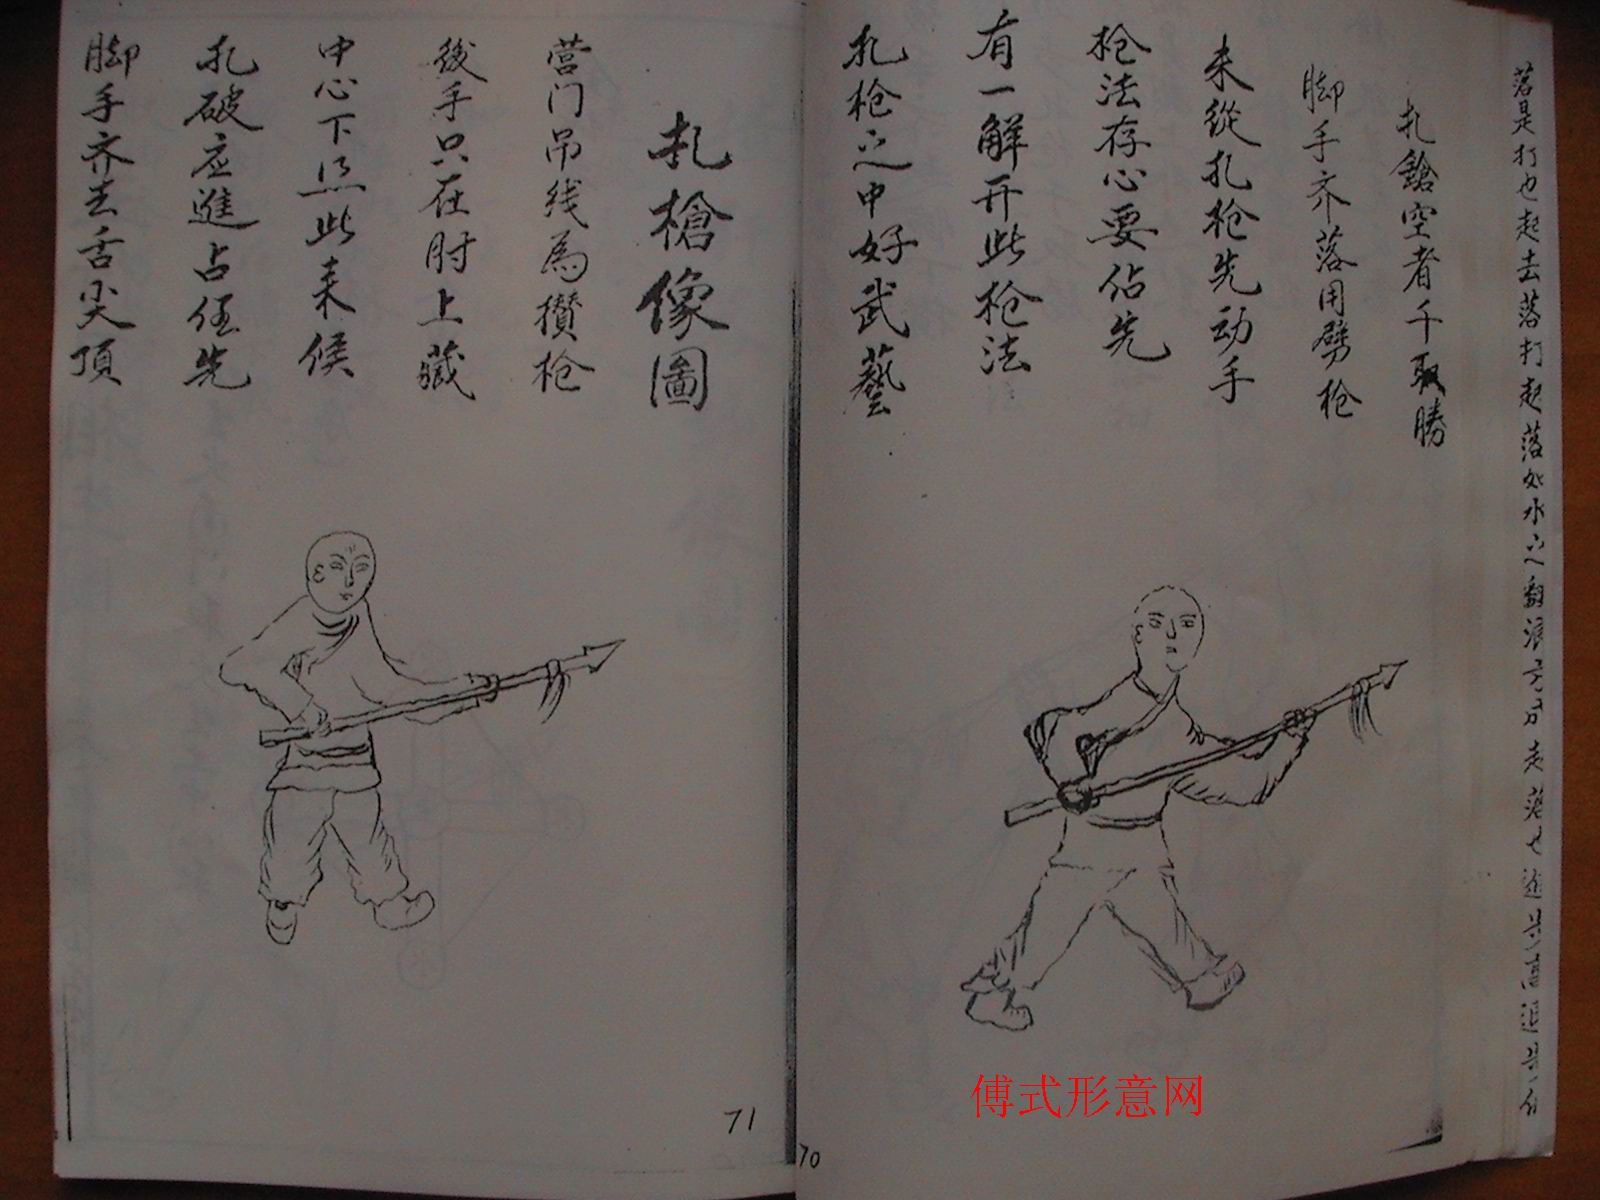 落是打也起去落打起落如水之翻浪
扎鎗空者千取勝
脚手齐落用劈枪
未從扎枪先动手
枪法存心要佔先
有一解开此枪法
扎枪之中好武藝
70
扎槍像圖
营门吊线為攢枪
後手只在肘上藏
中心下点此来候
扎破应進占伍先
脚手齐去舌尖頂
71
傅式形意网